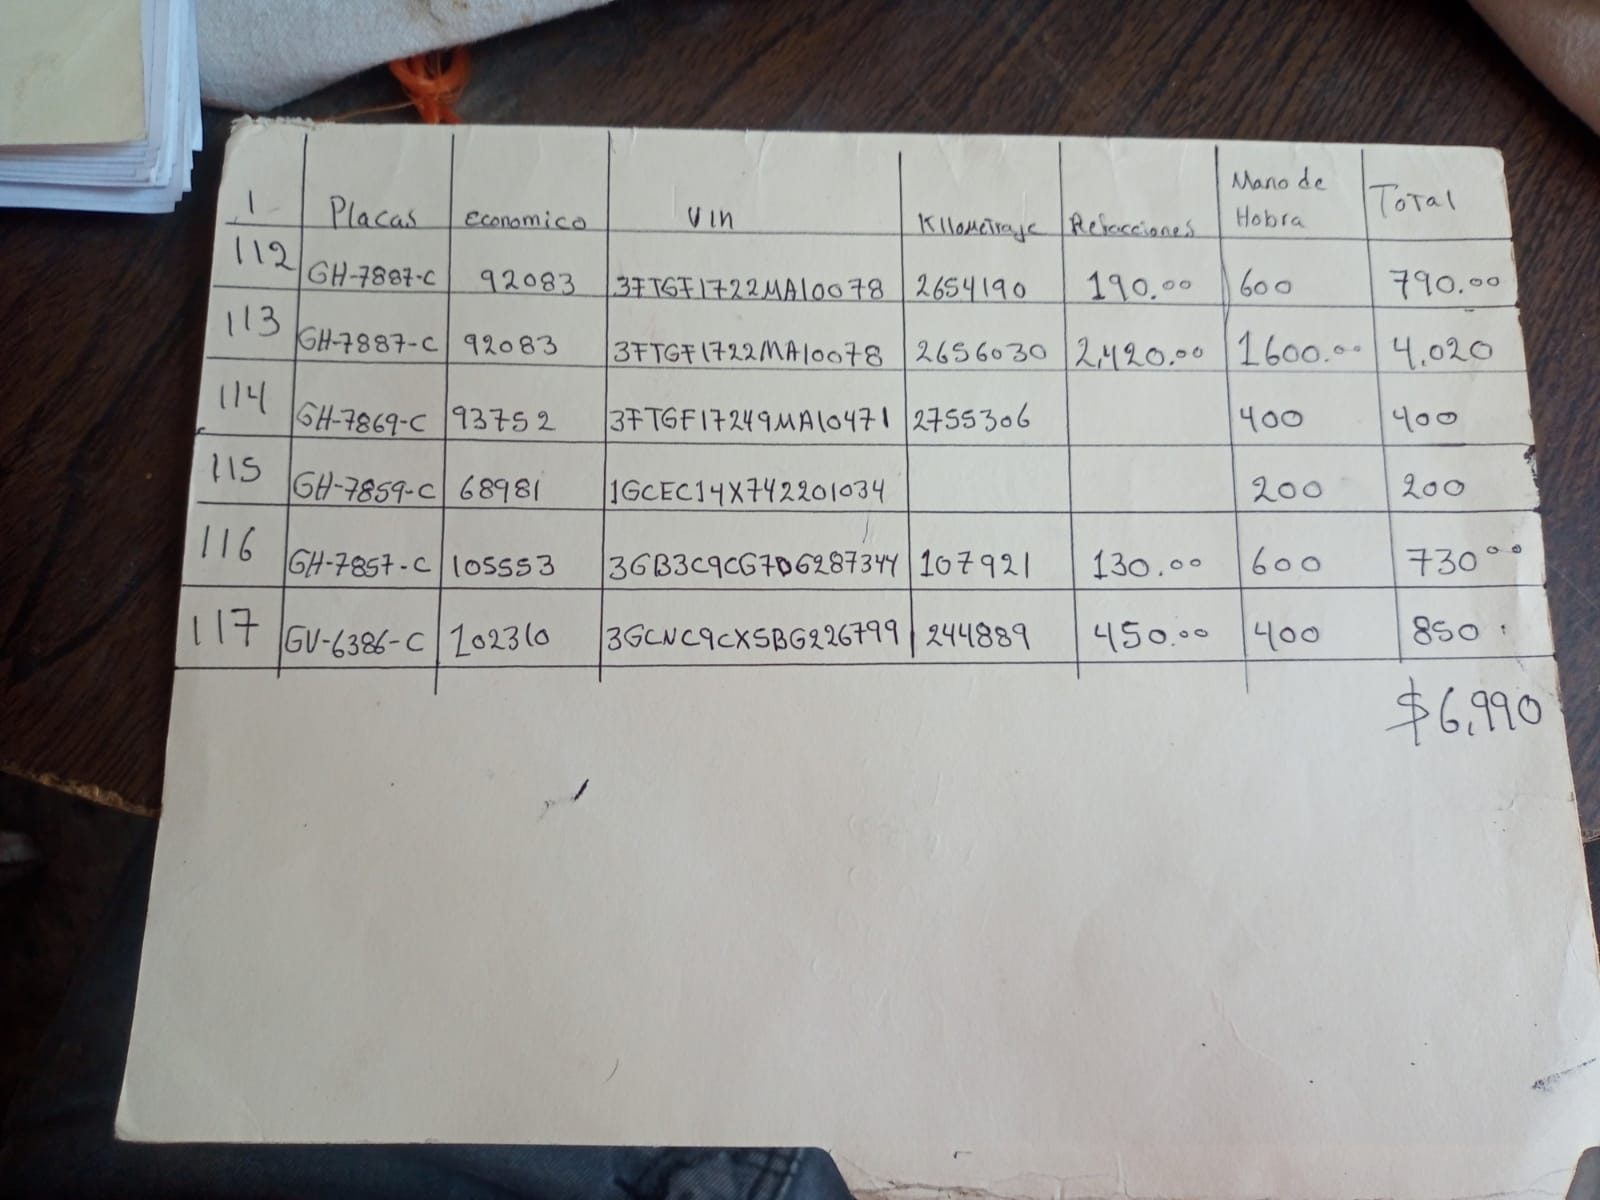 1 Placas economico VIn Kilometraje Refacciones Mano de Hobra Total
112 GH-7887-C 92083 3FTGF1722MA10078 2654190 190.00 600 790.00
113 GH-7887-C 92083 3FTGF1722MA10078 2656030 2,420.00 1600.00 4,020
114 GH-7869-C 93752 3FTGF17249MA10471 2755306 400 400
115 GH-7859-C 68981 1GCEC14X742201034 200 200
116 GH-7857-C 105553 3GB3C9CG7DG287344 107921 130.00 600 730.00
117 GV-6386-C 102310 3GCNC9CX5BG226799 244889 450.00 400 850
$6,990